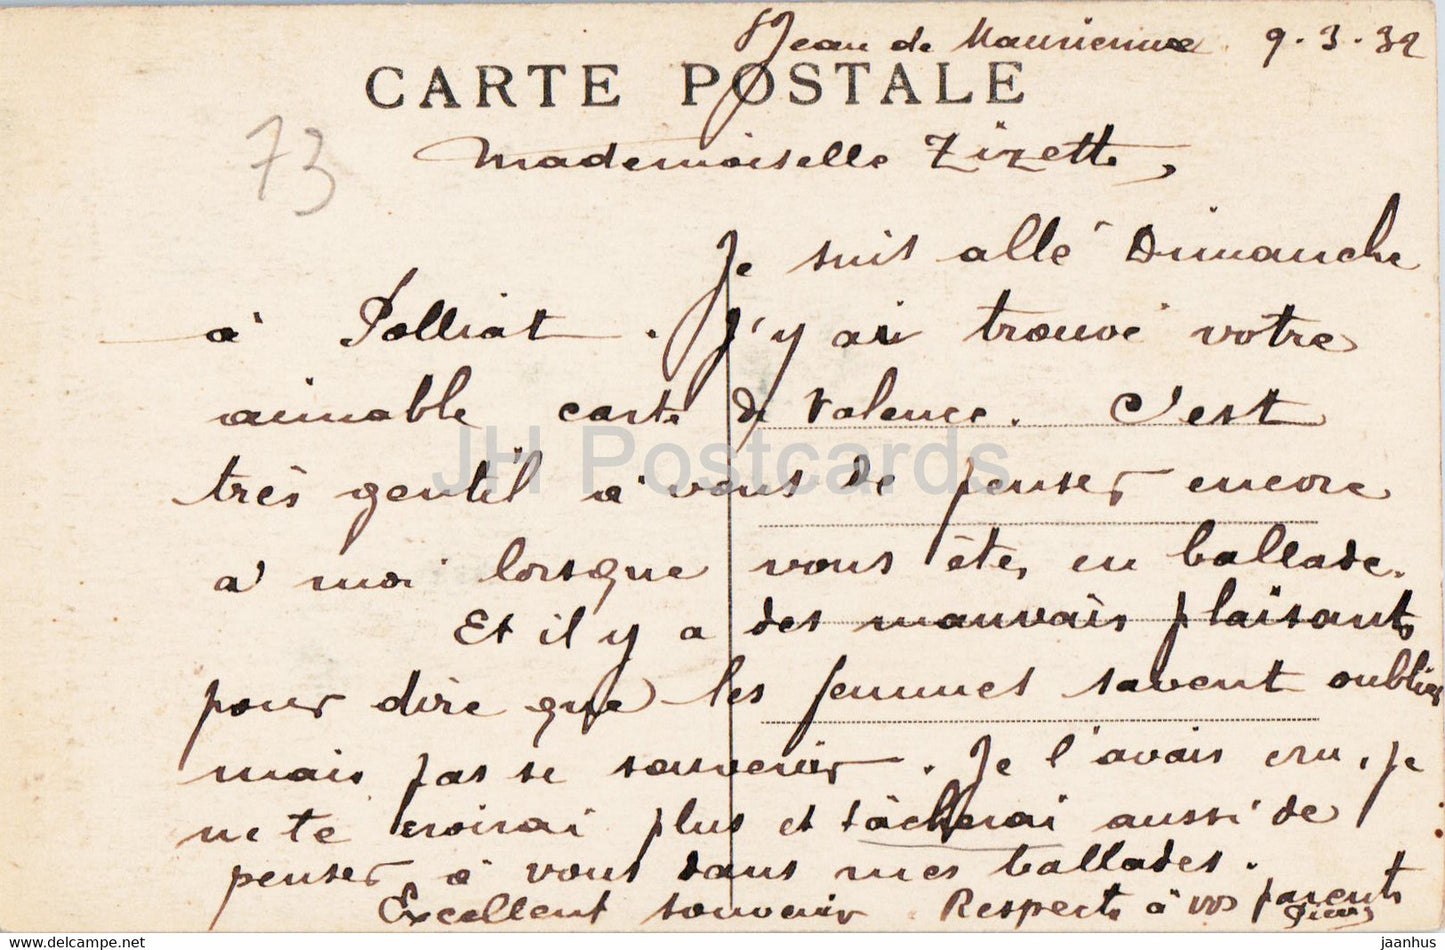 St Jean de Maurienne 9.3.32
CARTE POSTALE
73
Mademoiselle Zizette,
Je suis allé Dimanche
à Polliat. J'y ai trouvé votre
aimable carte de Valence. C'est
très gentil à vous de penser encore
à moi lorsque vous êtes en ballade.
Et il y a des mauvais plaisants
pour dire que les femmes savent oublier
mais pas se souvenir. Je l'avais cru, je
ne te croirai plus et tâcherai aussi de
penser à vous dans mes ballades.
Excellent souvenir. Respects à vos parents
JH Postcards
jaanhus — https://www.hippostcard.com